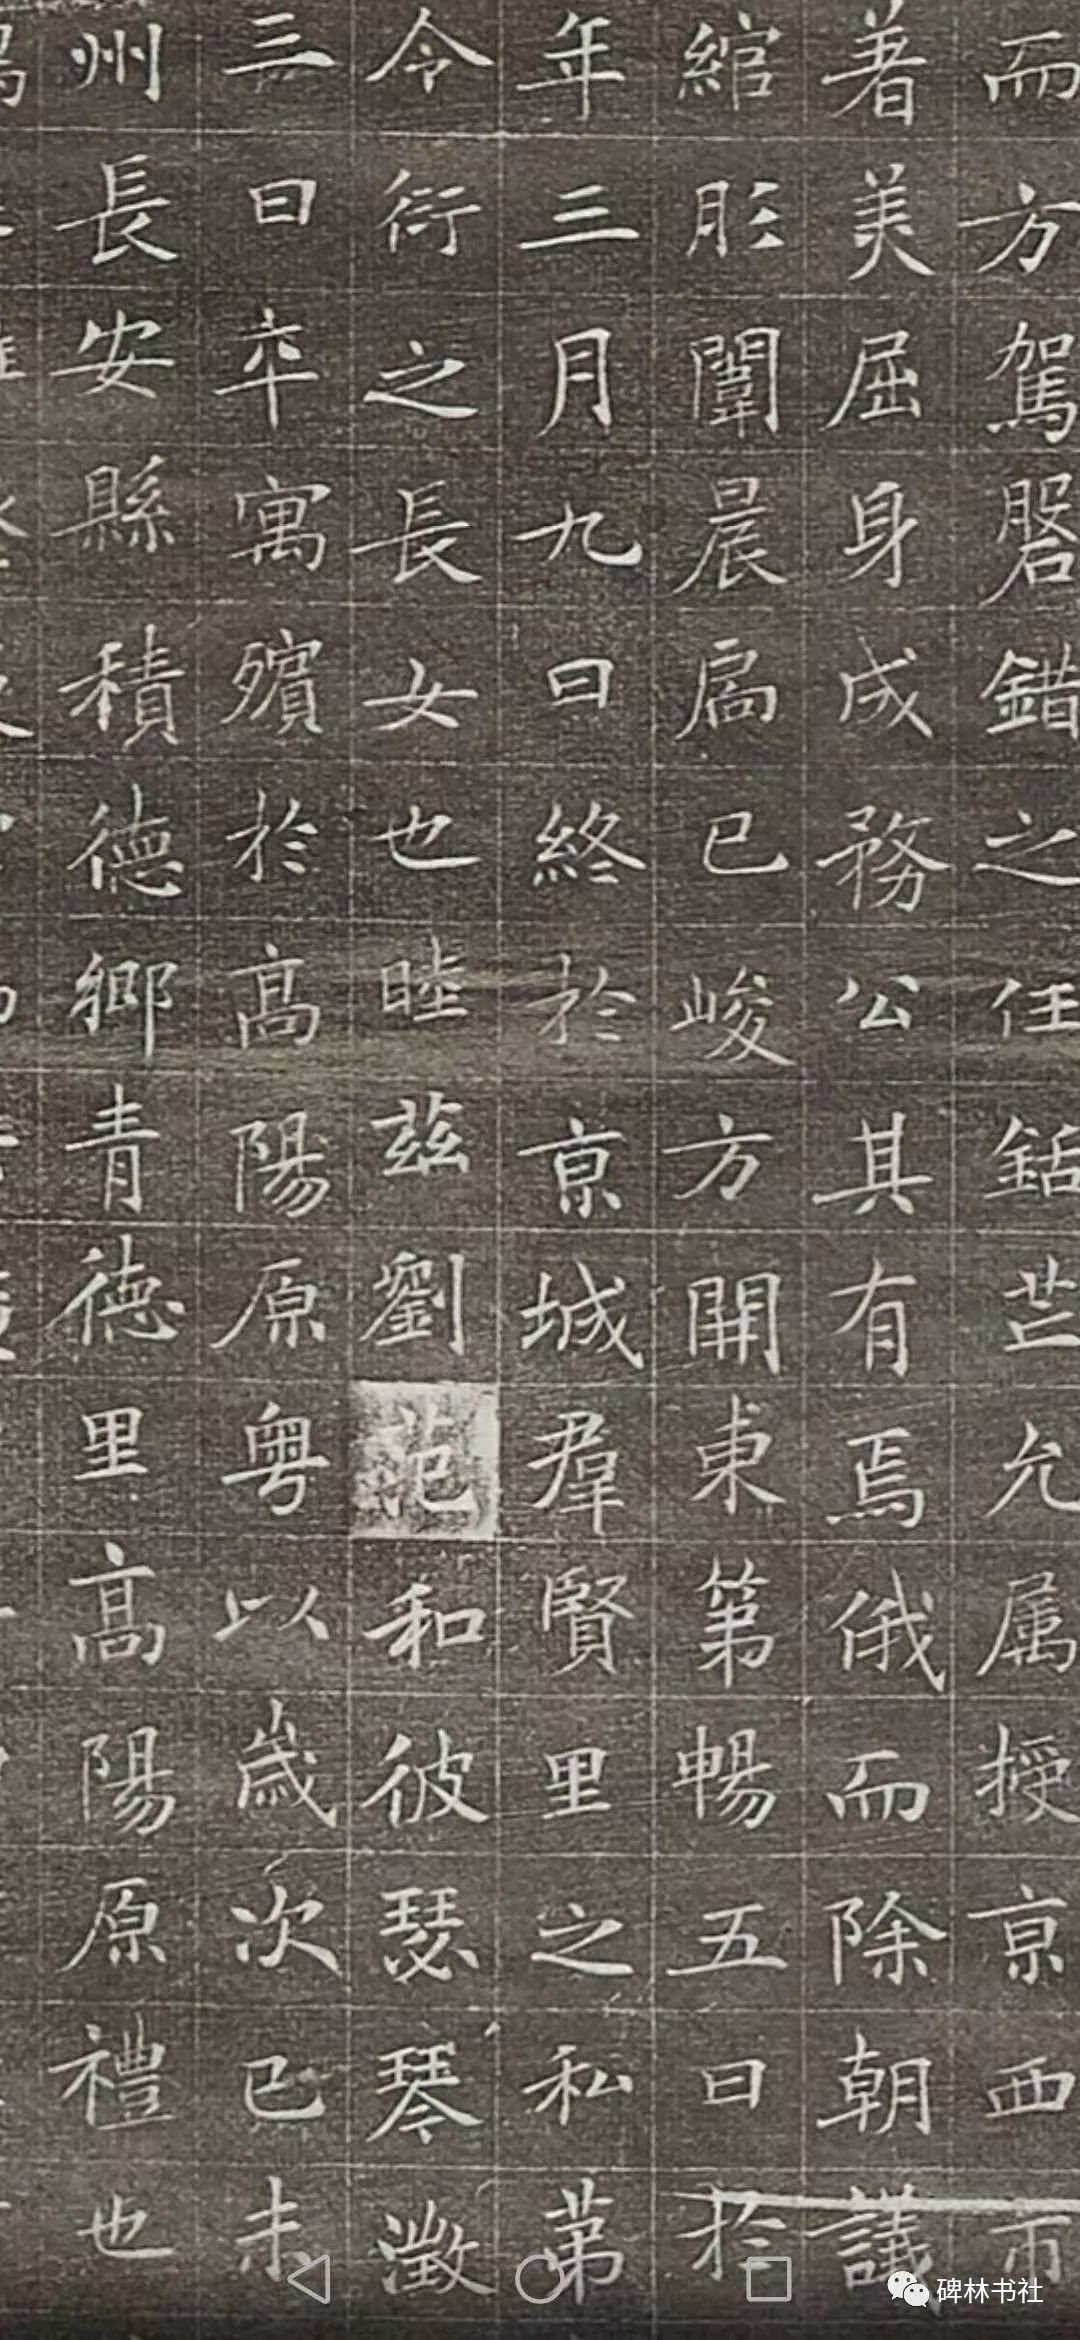 而方駕磐錯之任銛芒允属授京西市
著美屈身成務公其有焉俄而除朝議
綰彤闈晨扃已峻方開東第暢五日於
年三月九日終於京城羣賢里之私第
令衍之長女也睦茲劉范和彼瑟琴澂
三日卒寓殯於高陽原粵以歲次己未
州長安縣積德鄉青德里高陽原禮也
碑林书社